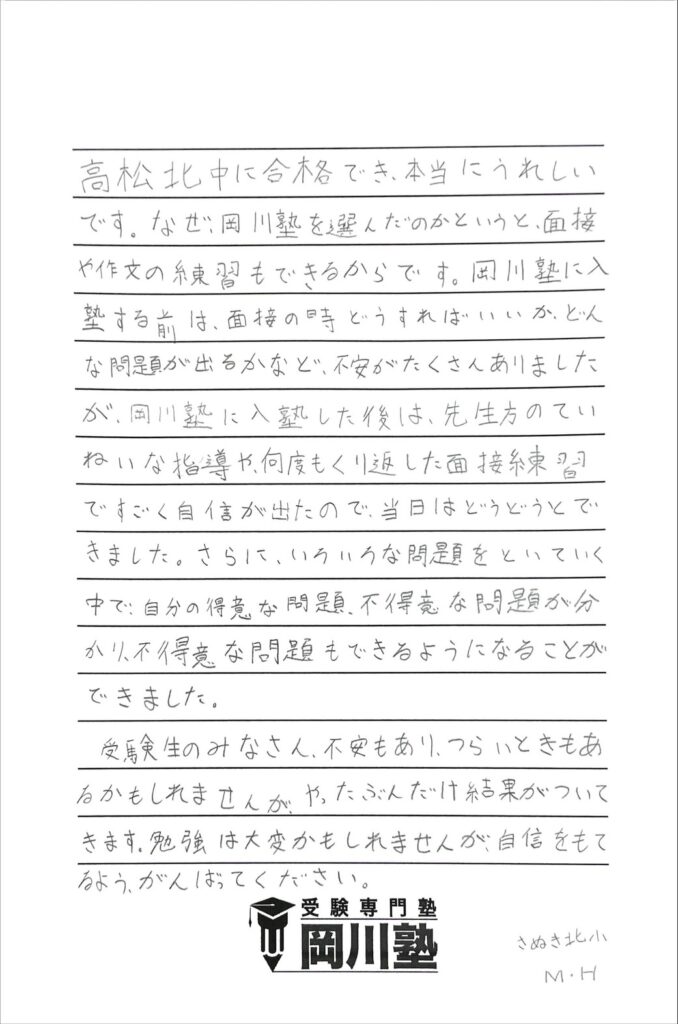 高松北中に合格でき、本当にうれしい
です。なぜ、岡川塾を選んだのかというと、面接
や作文の練習もできるからです。岡川塾に入
塾する前は、面接の時どうすればいいか、どん
な問題が出るかなど、不安がたくさんありました
が、岡川塾に入塾した後は、先生方のてい
ねいな指導や、何度もくり返した面接練習
ですごく自信が出たので、当日はどうどうとで
きました。さらに、いろいろな問題をといていく
中で、自分の得意な問題、不得意な問題が分
かり、不得意な問題もできるようになることが
できました。
受験生のみなさん、不安もあり、つらいときもあ
るかもしれませんが、やったぶんだけ結果がついて
きます。勉強は大変かもしれませんが、自信をもて
るよう、がんばってください。
受験専門塾
岡川塾
さぬき北小
M・H